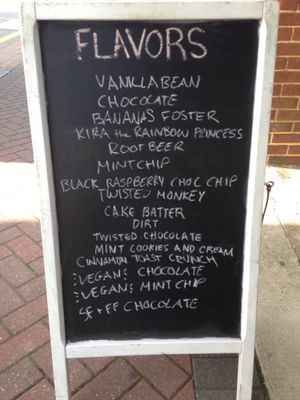 FLAVORS
VANILLA BEAN
CHOCOLATE
BANANAS FOSTER
KIRA the RAINBOW PRINCESS
ROOT BEER
MINT CHIP
BLACK RASPBERRY CHOC CHIP
TWISTED MONKEY
CAKE BATTER
DIRT
TWISTED CHOCOLATE
MINT COOKIES AND CREAM
CINNAMON TOAST CRUNCH
VEGAN: CHOCOLATE
VEGAN: MINT CHIP
SF + FF CHOCOLATE